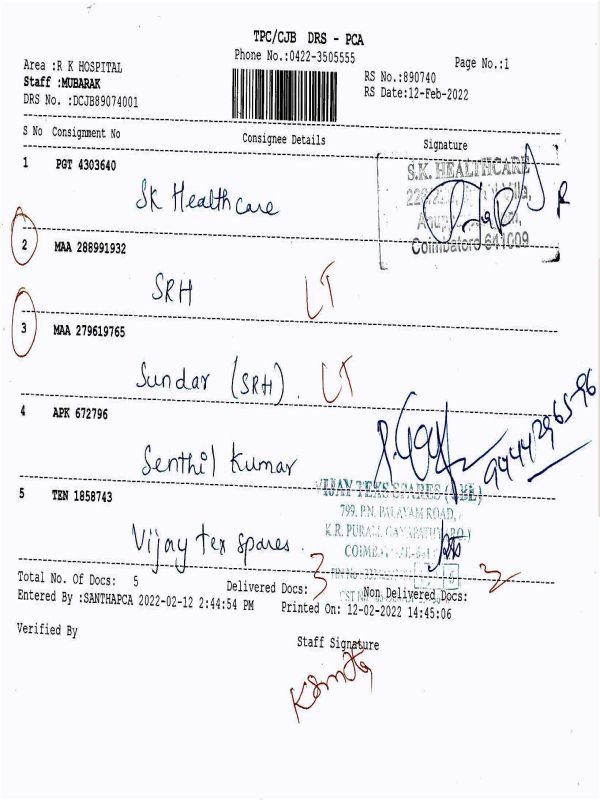 TPC/CJB DRS - PCA
Phone No.:0422-3505555
Page No.:1
Area :R K HOSPITAL
Staff :MUBARAK
DRS No. :DCJB89074001
RS No.:890740
RS Date:12-Feb-2022
S No Consignment No Consignee Details Signature
1 PGT 4303640
SK Healthcare
S.K. HEALTHCARE
Coimbatore 641009
2 MAA 288991932
SRH LT
3 MAA 279619765
Sundar (SRH). LT
4 APK 672796
Senthil Kumar
9444296596
5 TEN 1858743
Vijay tex spares.
VIJAY TEXS SPARES
799, P.N. PALAYAM ROAD,
Total No. Of Docs: 5 Delivered Docs: 3 Non Delivered Docs: 2
Entered By :SANTHAPCA 2022-02-12 2:44:54 PM Printed On: 12-02-2022 14:45:06
Verified By Staff Signature